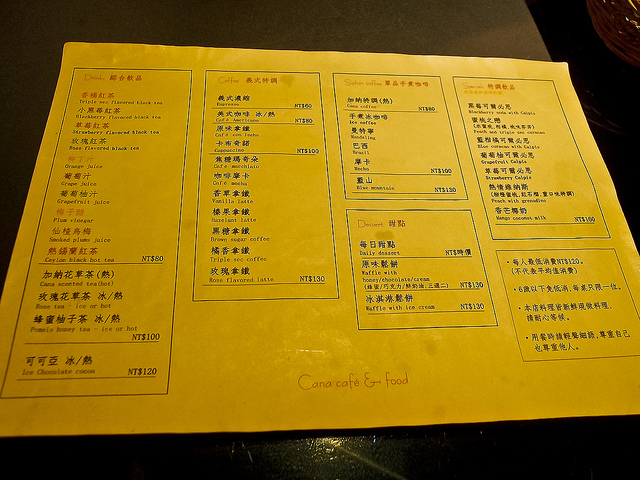 Drinks 綜合飲品
香橘紅茶
Triple sec flavored black tea
小黑莓紅茶
Blackberry flavored black tea
草莓紅茶
Strawberry flavored black tea
玫瑰紅茶
Rose flavored black tea
柳丁汁
Orange juice
葡萄汁
Grape juice
葡萄柚汁
Grapefruit juice
梅子醋
Plum vinegar
仙楂烏梅
Smoked plums juice
熱錫蘭紅茶
Ceylon black hot tea
NT$80
加納花草茶(熱)
Cana scented tea(hot)
玫瑰花草茶 冰/熱
Rose tea - ice or hot
蜂蜜柚子茶 冰/熱
Pomelo honey tea - ice or hot
NT$100
可可亞 冰/熱
Ice Chocolate cocoa
NT$120
Coffee 義式特調
義式濃縮
Espresso NT$60
美式咖啡 冰/熱
Café Americano NT$80
原味拿鐵
Café con leche
卡布奇諾
Cappuccino NT$100
焦糖瑪奇朵
Café macchiato
咖啡摩卡
Café mocha
香草拿鐵
Vanilla latte
榛果拿鐵
Hazelnut latte
黑糖拿鐵
Brown sugar coffee
橘香拿鐵
Triple sec coffee
玫瑰拿鐵
Rose flavored latte NT$130
Siphon coffee 單品手煮咖啡
加納特調(熱)
Cana coffee NT$80
手煮冰咖啡
Ice coffee
曼特寧
Mandeling
巴西
Brazil
摩卡
Mocha NT$100
藍山
Blue mountain NT$130
Dessert 甜點
每日甜點
Daily dessert NT$時價
原味鬆餅
Waffle with
honey/chocolate/cream
(蜂蜜/巧克力/鮮奶油,三選二) NT$130
冰淇淋鬆餅
Waffle with ice cream NT$130
Specials 特調飲品
黑莓可爾必思
Blackberry soda with Calpis
蜜桃之戀
Peach and triple sec curacao
藍柑橘可爾必思
Blue curacao with Calpis
葡萄柚可爾必思
Grapefruit Calpis
草莓可爾必思
Strawberry Calpis
熱情維納斯
Peach with grenadine
香芒椰奶
Mango coconut milk NT$160
・每人最低消費NT$120。
(不代表平均值消費)
・6歲以下免低消,每桌只限一位。
・本店料理皆新鮮現做料理,
請耐心等候。
・用餐時請輕聲細語,尊重自己
也尊重他人。
Cana café & food